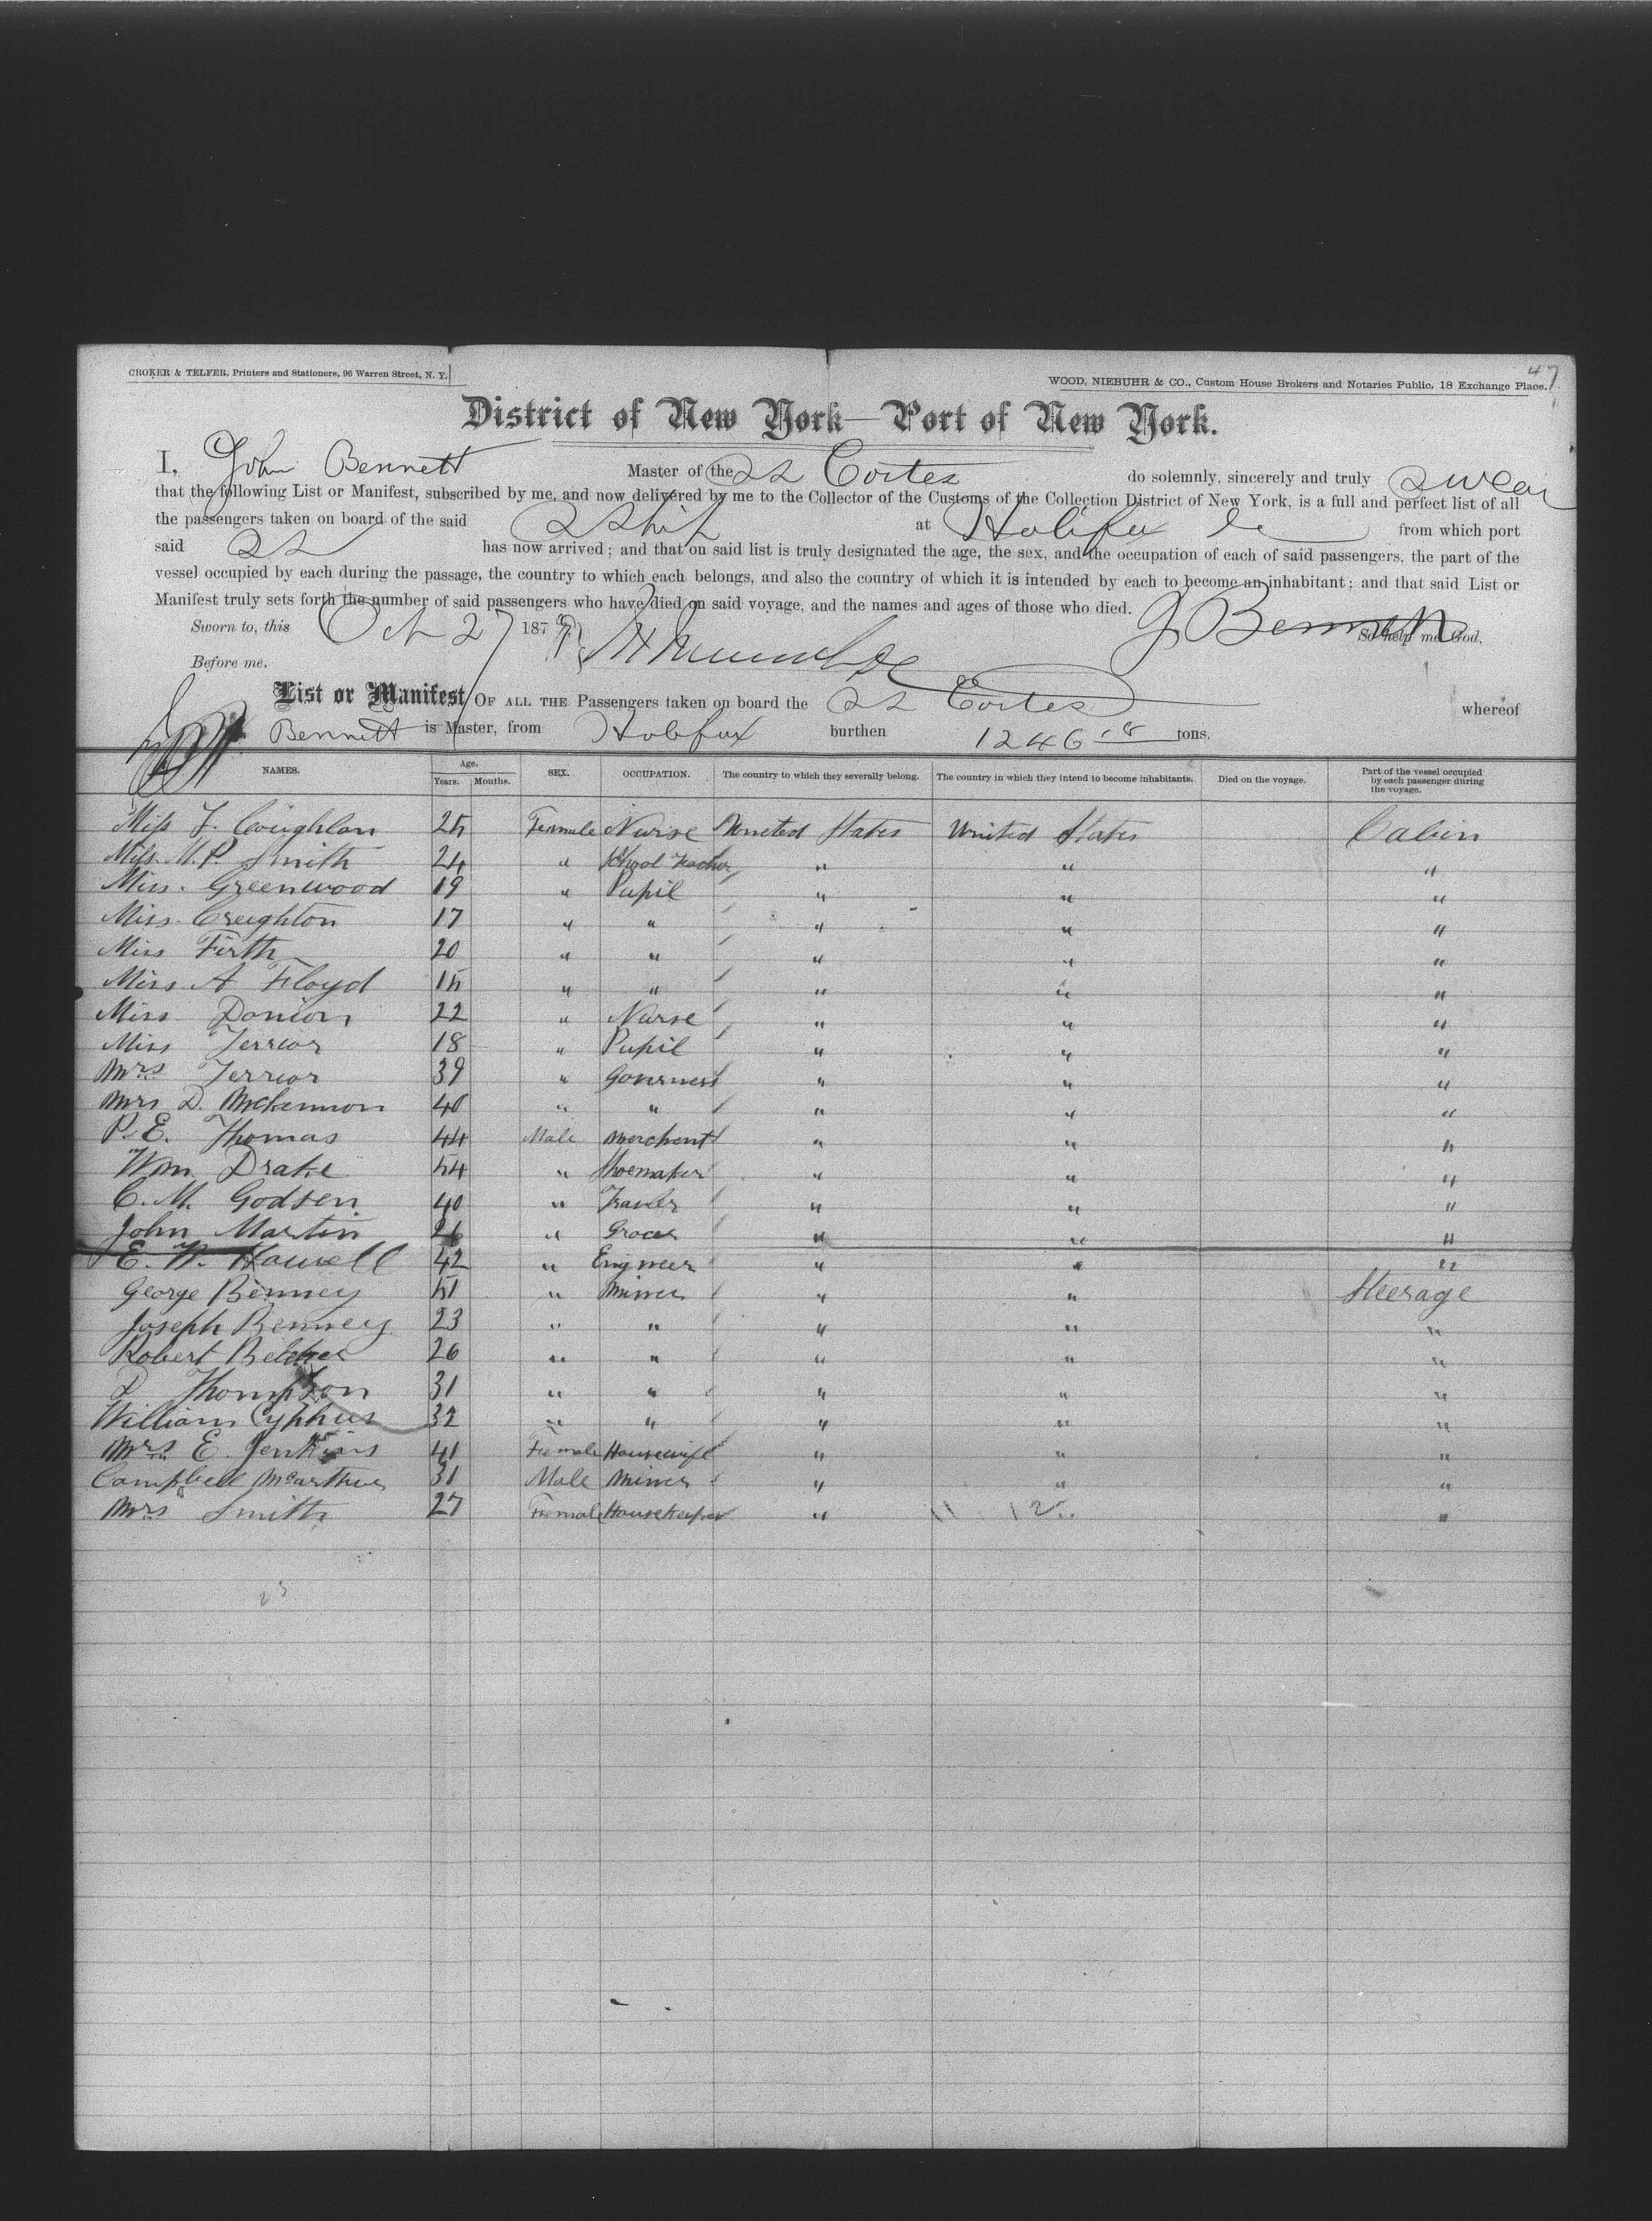 CROKER & TELFER, Printers and Stationers, 96 Warren Street, N. Y.
47
WOOD, NIEBUHR & CO., Custom House Brokers and Notaries Public, 18 Exchange Place.
District of New York—Port of New York.
I, John Bennett Master of the SS Cortes do solemnly, sincerely and truly swear
that the following List or Manifest, subscribed by me, and now delivered by me to the Collector of the Customs of the Collection District of New York, is a full and perfect list of all
the passengers taken on board of the said SShip at Halifax from which port
said SS has now arrived; and that on said list is truly designated the age, the sex, and the occupation of each of said passengers, the part of the
vessel occupied by each during the passage, the country to which each belongs, and also the country of which it is intended by each to become an inhabitant; and that said List or
Manifest truly sets forth the number of said passengers who have died on said voyage, and the names and ages of those who died.
Sworn to, this Oct 27 187 J Bennett So help me God.
Before me.
List or Manifest OF ALL THE Passengers taken on board the SS Cortes whereof
Bennett is Master, from Halifax burthen 1246 tons.
NAMES. Age. Years. Months. SEX. OCCUPATION. The country to which they severally belong. The country in which they intend to become inhabitants. Died on the voyage. Part of the vessel occupied by each passenger during the voyage.
Miss F. Coughlan 25 Female Nurse United States United States Cabin
Miss M. P. Smith 24 " School Teacher " " "
Miss Greenwood 19 " Pupil " " "
Miss Creighton 17 " " " " "
Miss Firth 20 " " " " "
Miss A Floyd 15 " " " " "
Miss 22 " Nurse " " "
Miss Terrior 18 " Pupil " " "
Mrs Terrior 39 " Governess " " "
Mrs D. McKennon 40 " " " " "
P. E. Thomas 44 Male Merchant " " "
Wm Drake 54 " Shoemaker " " "
C. M. Godsen 40 " " " "
John Martin 26 " Grocer " " "
E. W. Howell 42 " Engineer " " "
George Benney 51 " Miner " " Steerage
Joseph Benney 23 " " " " "
Robert Belcher 26 " " " " "
D Thompson 31 " " " " "
William Cyphus 32 " " " " "
Mrs E. Jenkins 41 Female Housewife " " "
Campbell McArthur 31 Male Miner " " "
Mrs Smith 27 Female Housekeeper " 11 12 " "
23